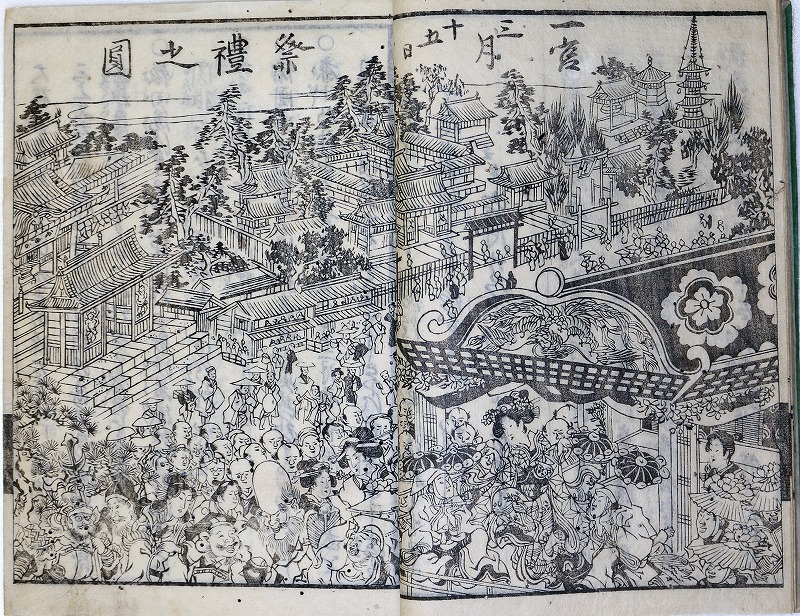 一宮
三月
十五日
祭禮之圖